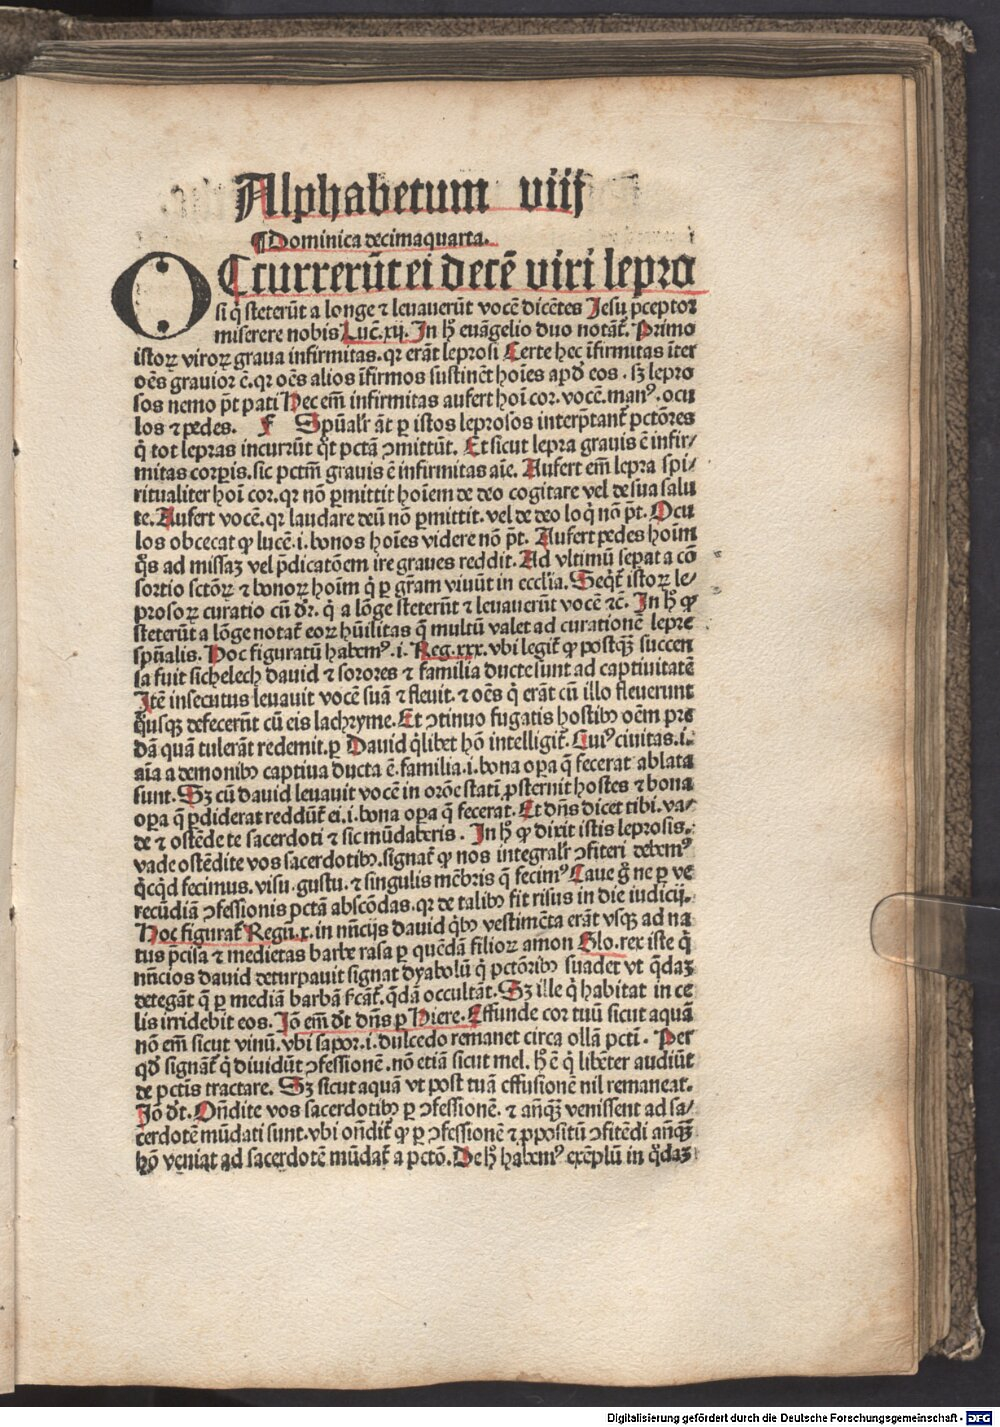 Alphabetum viij
¶Dominica decimaquarta.
OCcurrerūt ei decē viri lepro
si q̇ steterūt a longe ⁊ leuauerūt vocē dicētes Jesu p̄ceptor
miserere nobis Luc̄.xij. In hͦ euāgelio duo notāt̉. Primo
istoꝝ viroꝝ graua infirmitas.qꝛ erāt leprosi Certe hec īfirmitas īter
oēs grauior ē.qꝛ oēs alios īfirmos sustinēt hoīes apd̕ eos. sꝫ lepro
sos nemo pt̄ pati Hec em̄ infirmitas aufert hoī cor.vocē.manꝰ.ocu
los ⁊ pedes. F Spūalr̕ āt ꝑ istos leprosos interp̄tant̉ pctōres
q̇ tot lepras incurrūt qͦt pctā ↄmittūt. Et sicut lepra grauis ē infir⸗
mitas corꝑis.sic pctm̄ grauis ē infirmitas aīe. Aufert em̄ lepra spi⸗
ritualiter hoī cor.qꝛ nō ꝑmittit hoīem de deo cogitare vel de sua salu
te.Aufert vocē.qꝛ laudare deū nō ꝑmittit.vel de deo loq̇ nō pt̄. Ocu
los obcecat ꝙ lucē.i.bonos hoīes videre nō pt̄. Aufert pedes hoīm
qͦs ad missaꝫ vel p̄dicatōem ire graues reddit. Ad vltimū seꝑat a cō
sortio sctōꝝ ⁊ bonoꝝ hoīm q̇ ꝑ gr̄am viuūt in eccl̄ia. Seqͥt̉ istoꝝ le⸗
prosoꝝ curatio cū dr̄. q̇ a lōge steterūt ⁊ leuauerūt vocē ⁊c̄. In hͦ ꝙ
steterūt a lōge notat̉ eoꝝ hūilitas q̄ multū valet ad curationē lepre
spūalis. Hoc figuratū habemꝰ.i. Reg.xxx.vbi legit̉ ꝙ postqͣꝫ succen
sa fuit sichelech dauid ⁊ sorores ⁊ familia ducte sunt ad captiuitatē
Itē insecutus leuauit vocē suā ⁊ fleuit. ⁊ oēs q̇ erāt cū illo fleuerunt
qͦusqꝫ defecerūt cū eis lachryme. Et ↄtinuo fugatis hostibꝫ oēm pre
dā quā tulerāt redemit. ꝑ Dauid qͥlibet hō intelligit̉. Cuiꝰ ciuitas.i.
aīa a demonibꝫ captiua ducta ē.familia.i.bona oꝑa q̄ fecerat ablata
sunt. Sꝫ cū dauid leuauit vocē in orōe statī ꝓsternit hostes ⁊ bona
oꝑa q̄ ꝑdiderat reddūt̉ ei.i.bona oꝑa q̄ fecerat. Et dn̄s dicet tibi.va⸗
de ⁊ ostēde te sacerdoti ⁊ sic mūdaberis. In hͦ ꝙ dixit istis leprosis.
vade ostēdite vos sacerdotibꝫ.signat̉ ꝙ nos integralr̕ ↄfiteri debemꝰ
qͥcqͥd fecimus.visu.gustu. ⁊ singulis mēbris q̄ fecimꝰ Caue gͦ ne ꝑ ve
recūdiā ↄfessionis pctā abscōdas.qꝛ de talibꝫ fit risus in die iudicij.
Hoc figurat̉ Regū.x.in nūcijs dauid qͥbꝫ vestimēta erāt vsqꝫ ad na
tus p̄cisa ⁊ medietas barbe rasa ꝑ quēdā filioꝝ amon Glo.rex iste q̇
nūcios dauid deturpauit signat dyabolū q̇ pctōribꝫ suadet vt qͣdaꝫ
detegāt q̄ ꝑ mediā barbā fcāt̉.qͣdā occultāt. Sꝫ ille q̇ habitat in ce
lis irridebit eos. Jō em̄ dt̄ dn̄s ꝑ Hiere. Effunde cor tuū sicut aquā
nō em̄ sicut vinū.vbi sapor.i.dulcedo remanet circa ollā pcti. Per
qd̕ signāt̉ q̇ diuidūt ↄfessionē.nō etiā sicut mel. hͦ ē q̇ libēter audiūt
de pctīs tractare. Sꝫ sicut aquā vt post tuā effusionē nil remaneat.
Jō dt̄. Oñdite vos sacerdotibꝫ ꝑ ↄfessionē. ⁊ añqͣꝫ venissent ad sa⸗
cerdotē mūdati sunt.vbi oñdit̉ ꝙ ꝑ ↄfessionē ⁊ ꝓpositū ↄfitēdi añqͣꝫ
hō veniat ad sacerdotē mūdat̉ a pctō. De hͦ habemꝰ exēplū in qͦdaꝫ
Digitalisierung gefördert durch die Deutsche Forschungsgemeinschaft - DFG